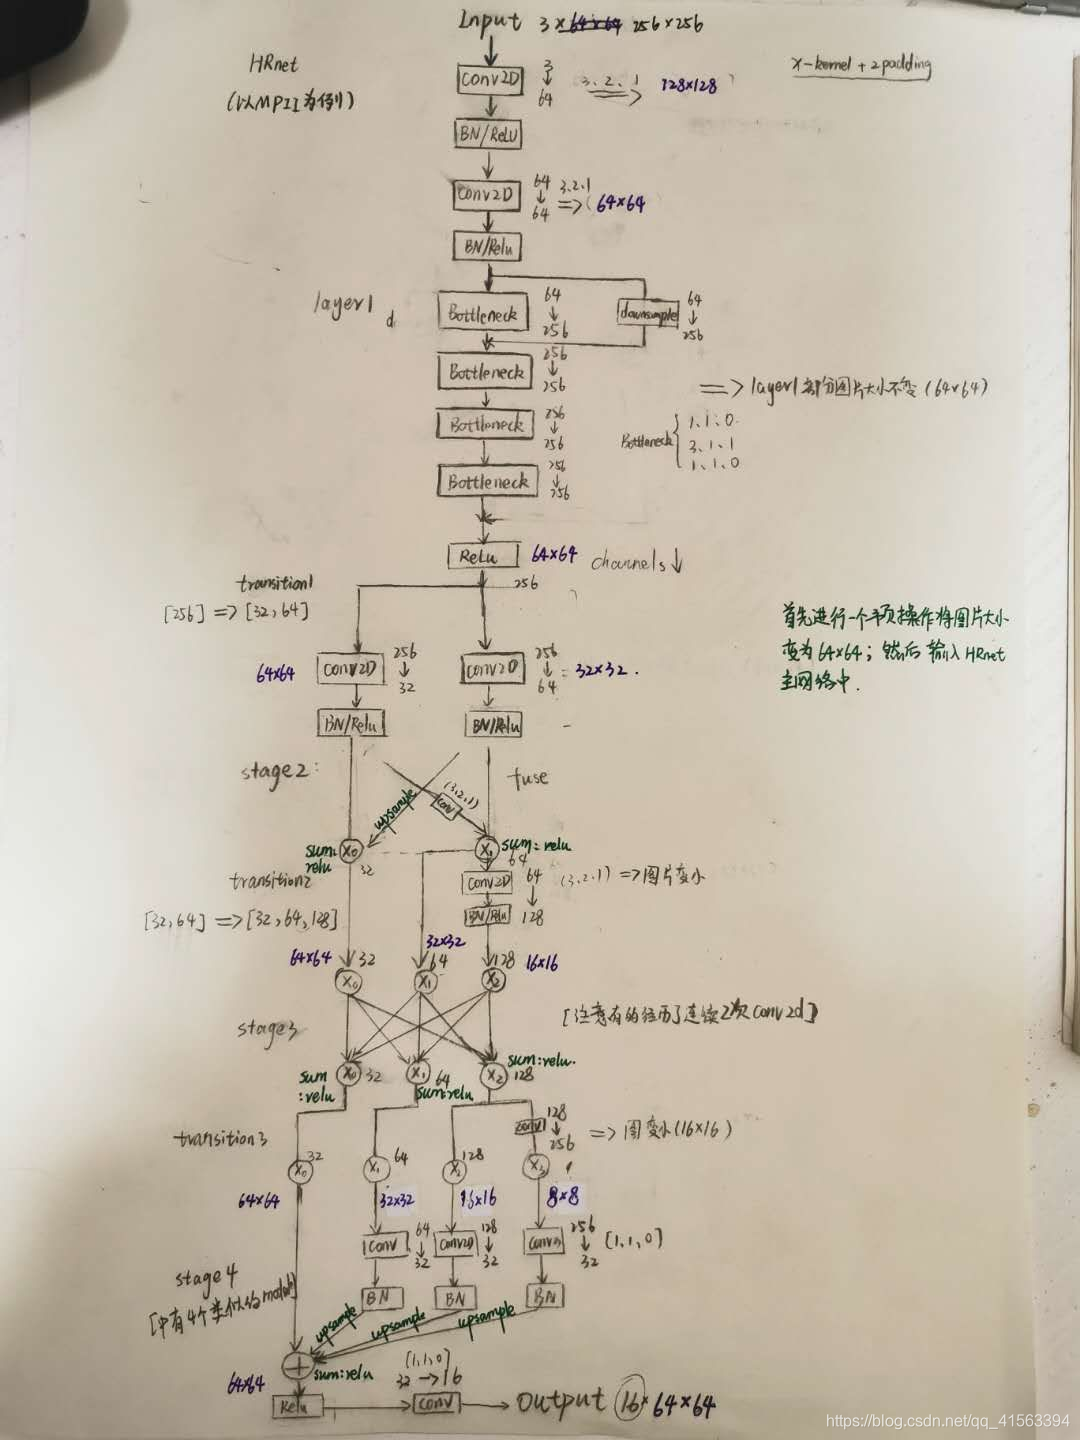 Input 3×64×64 256×256
HRnet
(以MPII为例)
x-kernel+2padding
Conv2D 3 ↓ 64 3、2、1 ⇒ 128×128
BN/ReLU
Conv2D 64 ↓ 64 3、2、1 ⇒ 64×64
BN/Relu
layer1
Bottleneck 64 ↓ 256 downsample 64 ↓ 256
Bottleneck 256 ↓ 256
⇒ layer1部分图片大小不变 (64×64)
Bottleneck 256 ↓ 256
Bottleneck { 1、1、0
3、1、1
1、1、0
Bottleneck 256 ↓ 256
ReLu 64×64 channels↓
256
transition1
[256] ⇒ [32,64]
首先进行一个预操作将图片大小
变为64×64；然后输入HRnet
主网络中.
64×64 Conv2D 256 ↓ 32
Conv2D 256 ↓ 64 = 32×32.
BN/Relu BN/Relu
stage2: fuse
upsample conv (3,2,1)
sum:relu X0 32
X1 sum:relu 64
transition2
Conv2D 64 ↓ 128 (3、2、1) ⇒图片变小
BN/Relu
[32,64] ⇒ [32,64,128]
64×64 32 32×32 64 128 16×16
X0 X1 X2
stage3
[注意有的经历了连续2次Conv2d]
sum:relu X0 32 X1 64 sum:relu X2 128 sum:relu.
transition3
conv 128 ↓ 256 ⇒ 图变小(16×16)
X0 32 X1 64 X2 128 X3
64×64 32×32 16×16 8×8
Conv 64 ↓ 32 Conv2D 128 ↓ 32 Conv2D 256 ↓ 32 [1,1,0]
stage4
[中有4个类似的module]
BN BN BN
upsample upsample upsample
+ sum:relu
64×64
[1,1,0]
32→16
Relu conv → output 16×64×64
https://blog.csdn.net/qq_41563394